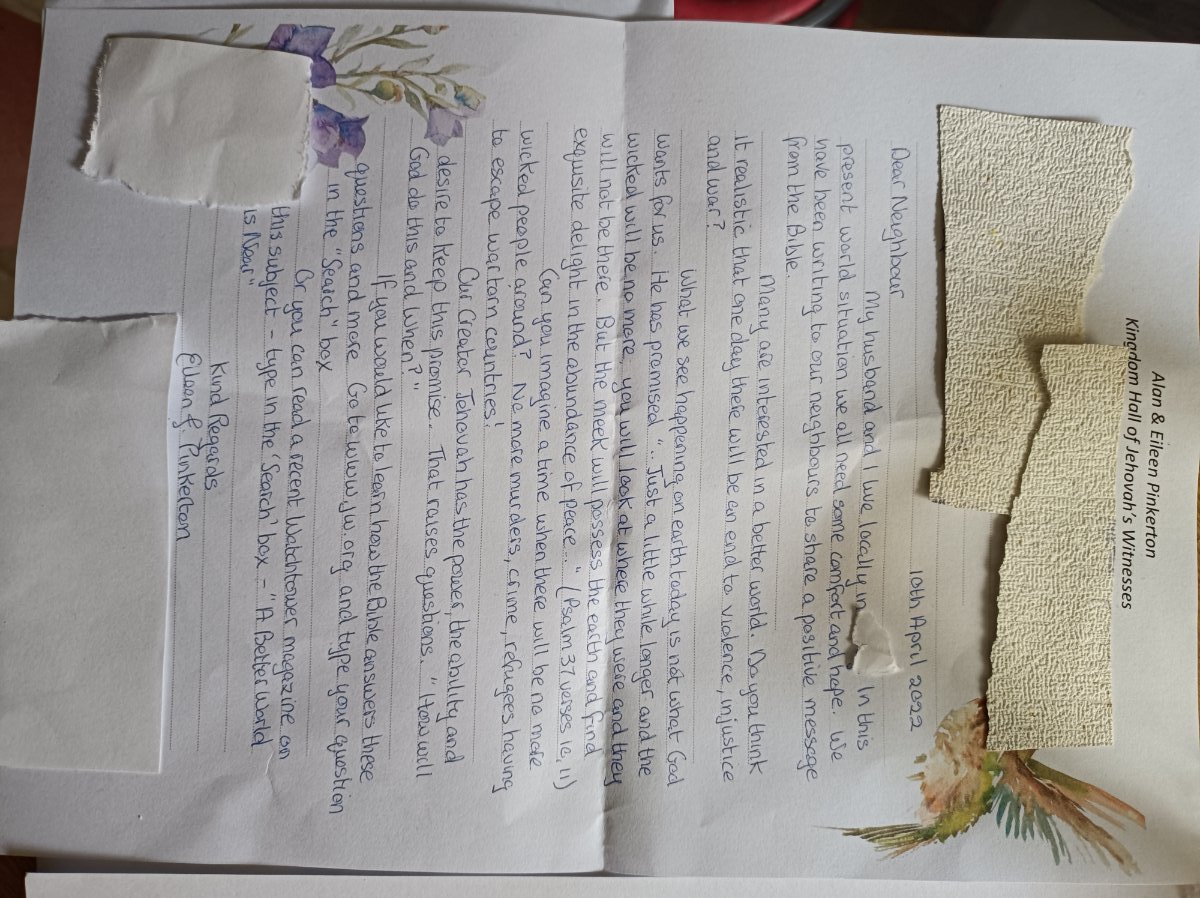 Alan & Eileen Pinkerton
Kingdom Hall of Jehovah's Witnesses
10th April 2022
Dear Neighbour
My husband and I live locally in In this
present world situation we all need some comfort and hope. We
have been writing to our neighbours to share a positive message
from the Bible.
Many are interested in a better world. Do you think
it realistic that one day there will be an end to violence, injustice
and war?
What we see happening on earth today is not what God
wants for us. He has promised "... Just a little while longer and the
wicked will be no more, you will look at where they were and they
will not be there. But the meek will possess the earth and find
exquisite delight in the abundance of peace..." (Psalm 37 verses 10, 11)
Can you imagine a time when there will be no more
wicked people around? No more murders, crime, refugees having
to escape war torn countries!
Our Creator Jehovah has the power, the ability and
desire to keep this promise. That raises questions. "How will
God do this and when?"
If you would like to learn how the Bible answers these
questions and more Go to www.jw.org and type your question
in the "Search" box
Or you can read a recent Watchtower magazine on
this subject - type in the 'Search' box - "A Better World
is Near"
Kind Regards
Eileen & Pinkerton